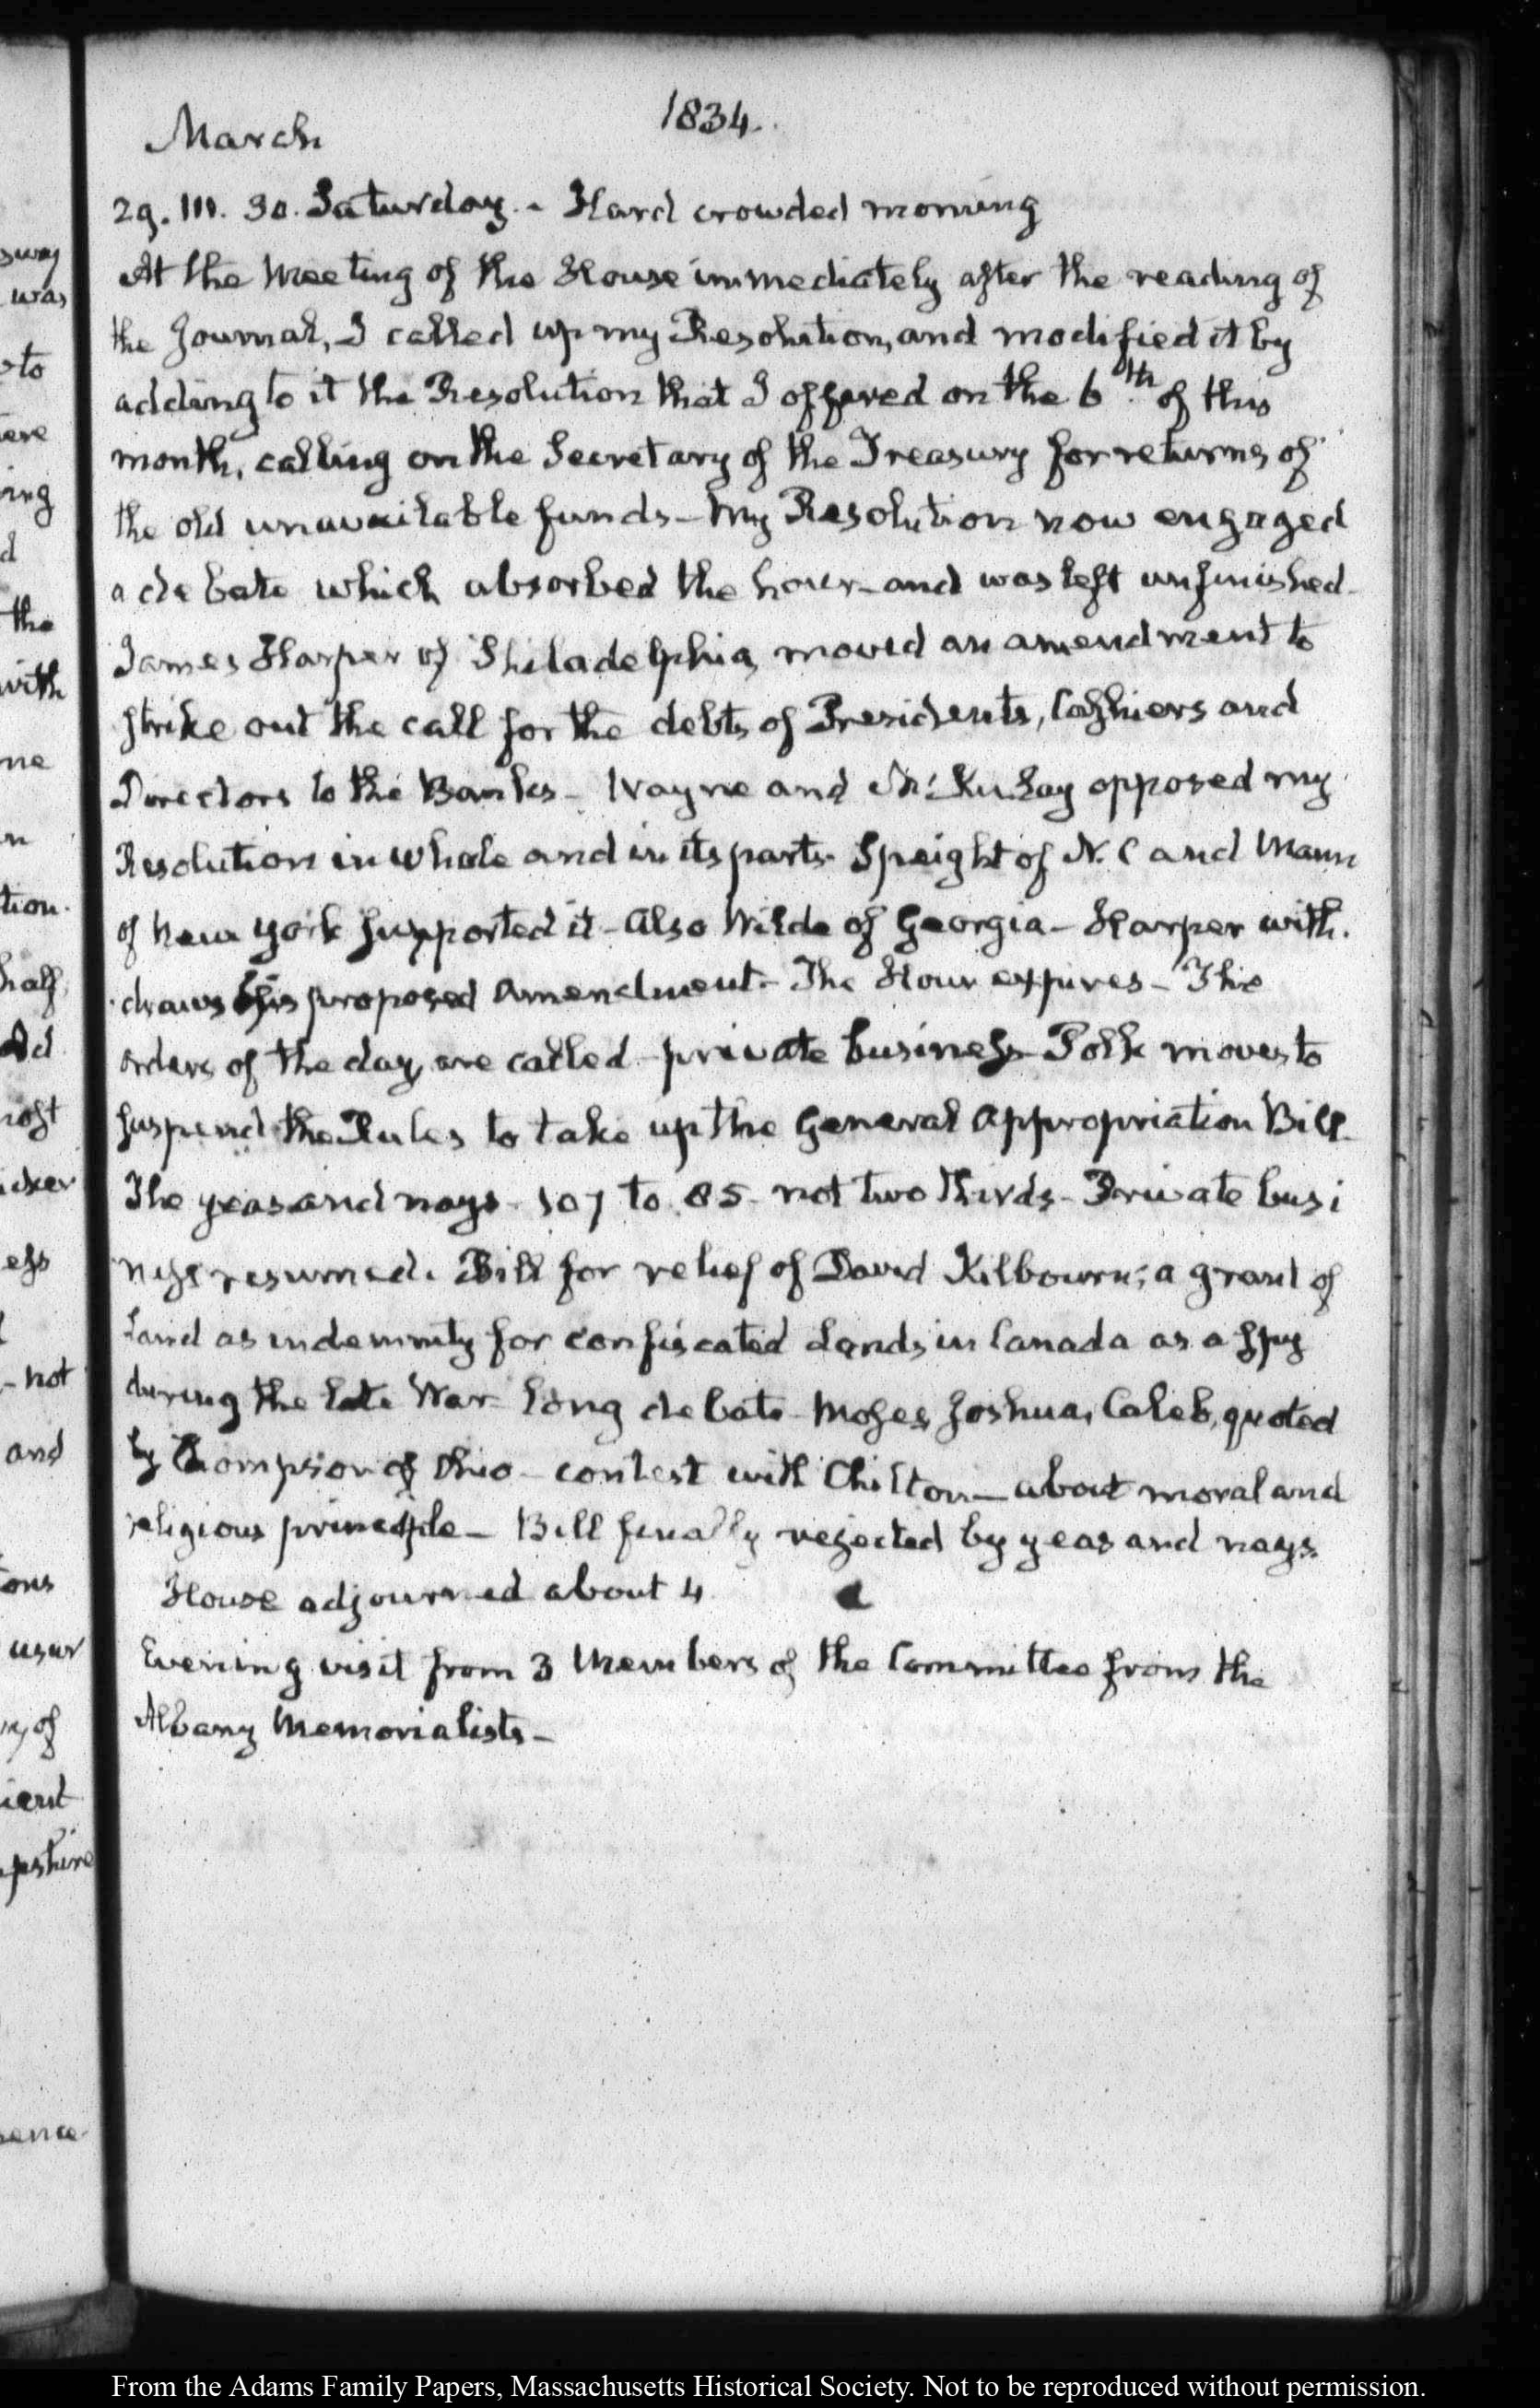 March 1834.
29. III. 30. Saturday. - Hard crowded morning
At the Meeting of the House immediately after the reading of
the Journal, I called up my Resolution, and modified it by
adding to it the Resolution that I offered on the 6th. of this
month, calling on the Secretary of the Treasury for returns of
the old unavailable funds - My Resolution now engaged
a debate which absorbed the hour - and was left unfinished -
James Harper of Philadelphia, moved an amendment to
strike out the call for the debts of Presidents, Cashiers and
Directors to the Banks - Wayne and McKinlay opposed my
Resolution in whole and in its parts. Speight of N. C and Mann
of New York supported it - Also Wilde of Georgia - Harper with.
draws his proposed Amendment. The Hour expires - The
orders of the day, are called - private business - Polk moves to
suspend the Rules to take up the General Appropriation Bill.
The yeas and nays - 107 to 85 - not two thirds - Private busi
ness resumed. Bill for relief of David Kilbourn; a grant of
Land as indemnity for confiscated Lands in Canada as a spy
during the late War - Long debate - Moses, Joshua, Caleb, quoted
by Thompson of Ohio - contest with Chilton - about moral and
religious principle - Bill finally rejected by yeas and nays.
House adjourned about 4
Evening visit from 3 Members of the Committee from the
Albany Memorialists -
From the Adams Family Papers, Massachusetts Historical Society. Not to be reproduced without permission.